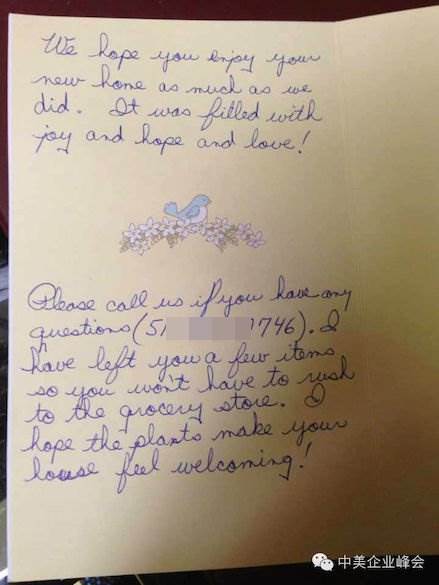 We hope you enjoy your
new home as much as we
did. It was filled with
joy and hope and love!
Please call us if you have any
questions (51 1746). I
have left you a few items
so you won't have to rush
to the grocery store. I
hope the plants make your
house feel welcoming!
中美企业峰会